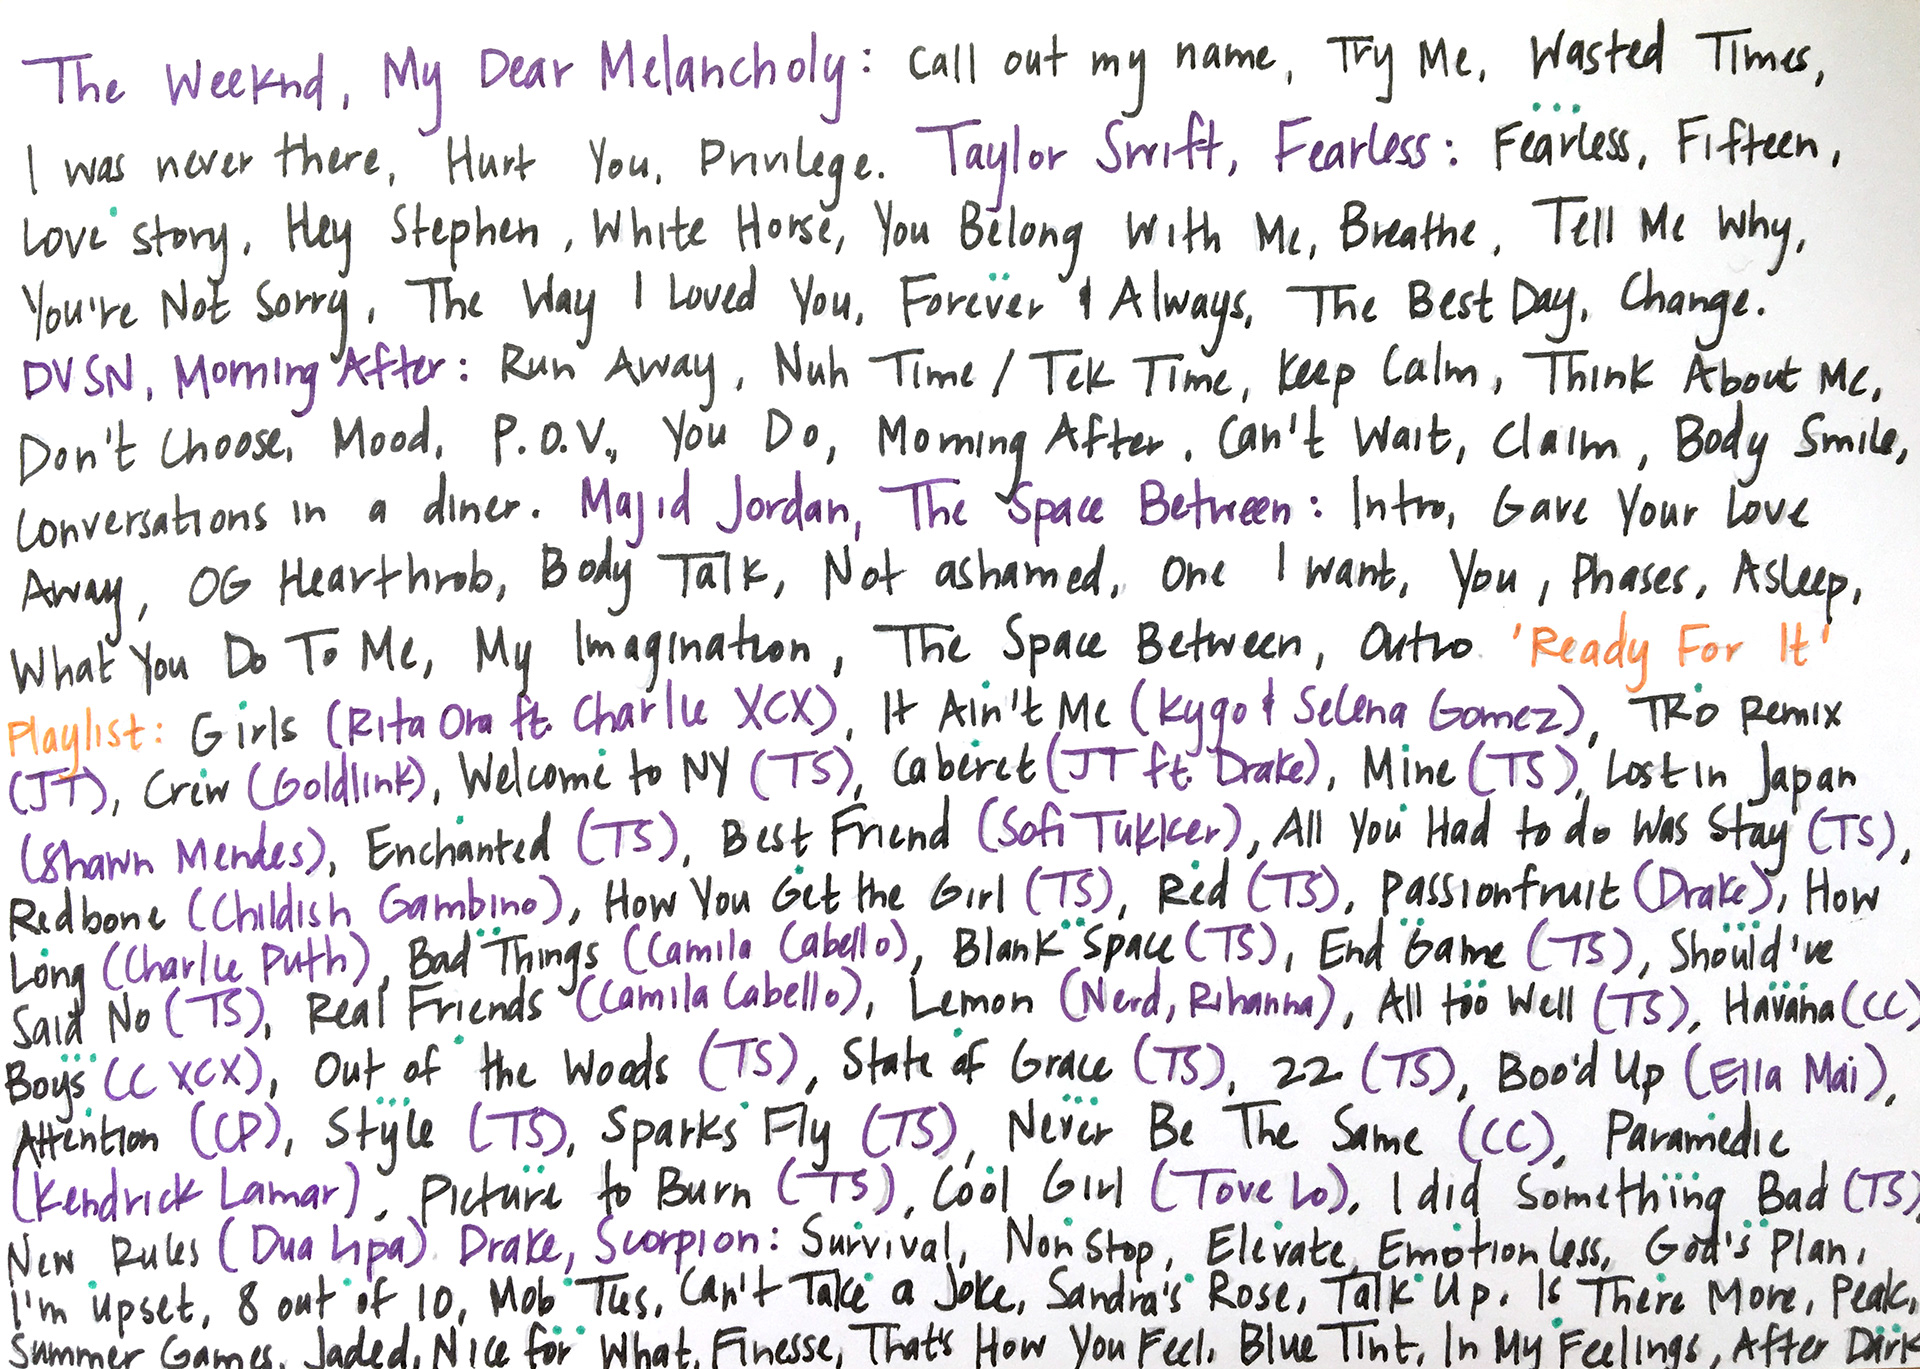 The Weeknd, My Dear Melancholy: Call out my name, Try Me, Wasted Times,
I was never there, Hurt You, Privilege. Taylor Swift, Fearless: Fearless, Fifteen,
Love story, Hey Stephen, White Horse, You Belong With Me, Breathe, Tell Me Why,
You're Not Sorry, The Way I Loved You, Forever & Always, The Best Day, Change.
DVSN, Morning After: Run Away, Nuh Time / Tek Time, Keep Calm, Think About Me,
Don't Choose, Mood, P.O.V., You Do, Morning After, Can't Wait, Claim, Body Smile,
Conversations in a diner. Majid Jordan, The Space Between: Intro, Gave Your Love
Away, OG Hearthrob, Body Talk, Not ashamed, One I want, You, Phases, Asleep,
What You Do To Me, My Imagination, The Space Between, Outro 'Ready For It'
Playlist: Girls (Rita Ora ft. Charlie XCX), It Ain't Me (Kygo & Selena Gomez), TKO Remix
(JT), Crew (Goldlink), Welcome to NY (TS), Caberet (JT ft. Drake), Mine (TS), Lost in Japan
(Shawn Mendes), Enchanted (TS), Best Friend (Sofi Tukker), All You Had to do Was Stay (TS),
Redbone (Childish Gambino), How You Get the Girl (TS), Red (TS), Passionfruit (Drake), How
Long (Charlie Puth), Bad Things (Camila Cabello), Blank Space (TS), End Game (TS), Should've
Said No (TS), Real Friends (Camila Cabello), Lemon (Nerd, Rihanna), All too Well (TS), Havana (CC)
Boys (C XCX), Out of the Woods (TS), State of Grace (TS), 22 (TS), Boo'd Up (Ella Mai),
Attention (CP), Style (TS), Sparks Fly (TS), Never Be The Same (CC), Paramedic
(Kendrick Lamar), Picture to Burn (TS), Cool Girl (Tove Lo), I did Something Bad (TS),
New Rules (Dua Lipa) Drake, Scorpion: Survival, Non Stop, Elevate, Emotionless, God's Plan,
I'm upset, 8 out of 10, Mob Ties, Can't Take a Joke, Sandra's Rose, Talk Up, Is There More, Peak,
Summer Games, Jaded, Nice for What, Finesse, That's How You Feel, Blue Tint, In My Feelings, After Dark